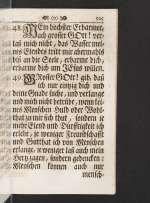 48. Mein höchster Erbarmer,
Ach grosser GOtt! ver-
laß mich nicht, das Wasser mei-
nes Elendes tritt mir abermahls
biß an die Seele, erbarme dich,
erbarme dich um JEsus willen.
49. Grosser GOtt! gib, daß
ich nur einzig dich und
deine Gnade suche, und verlange
und mich nicht betrübe, wenn ich
Menschen Huld oder Wohl-
that zu
mein Elend und Dürfftigkeit ich
je weniger Freundschafft
und Gutthat ich von Menschen
erlange, je weniger laß auch mein
Hertz sondern gedencken:
Menschen können auch nur
mensch-